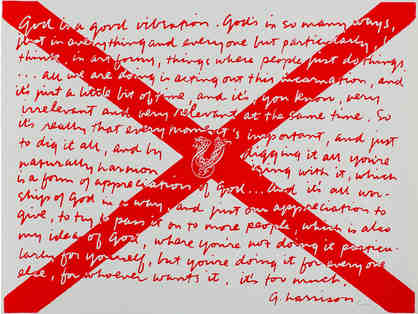 God is a good vibration. God's in so many ways,
just in everything and everyone but particularly, I
think, in art forms, things where people just do things.
... all we are doing is acting out this incarnation, and
it's just a little bit of time, and it's, you know, very
irrelevant and very relevant at the same time. So
it's really that every moment's important, and just
to dig it all, and by digging it all you're
naturally harmonizing with it, which
is a form of appreciation of God... And it's all wor-
ship of God in a way, and just our appreciation to
give, to try to pass it on to more people, which is also
my idea of God, where you're not doing it particu-
larly for yourself, but you're doing it for everyone
else, for whoever wants it, it's too much.
G. Harrison